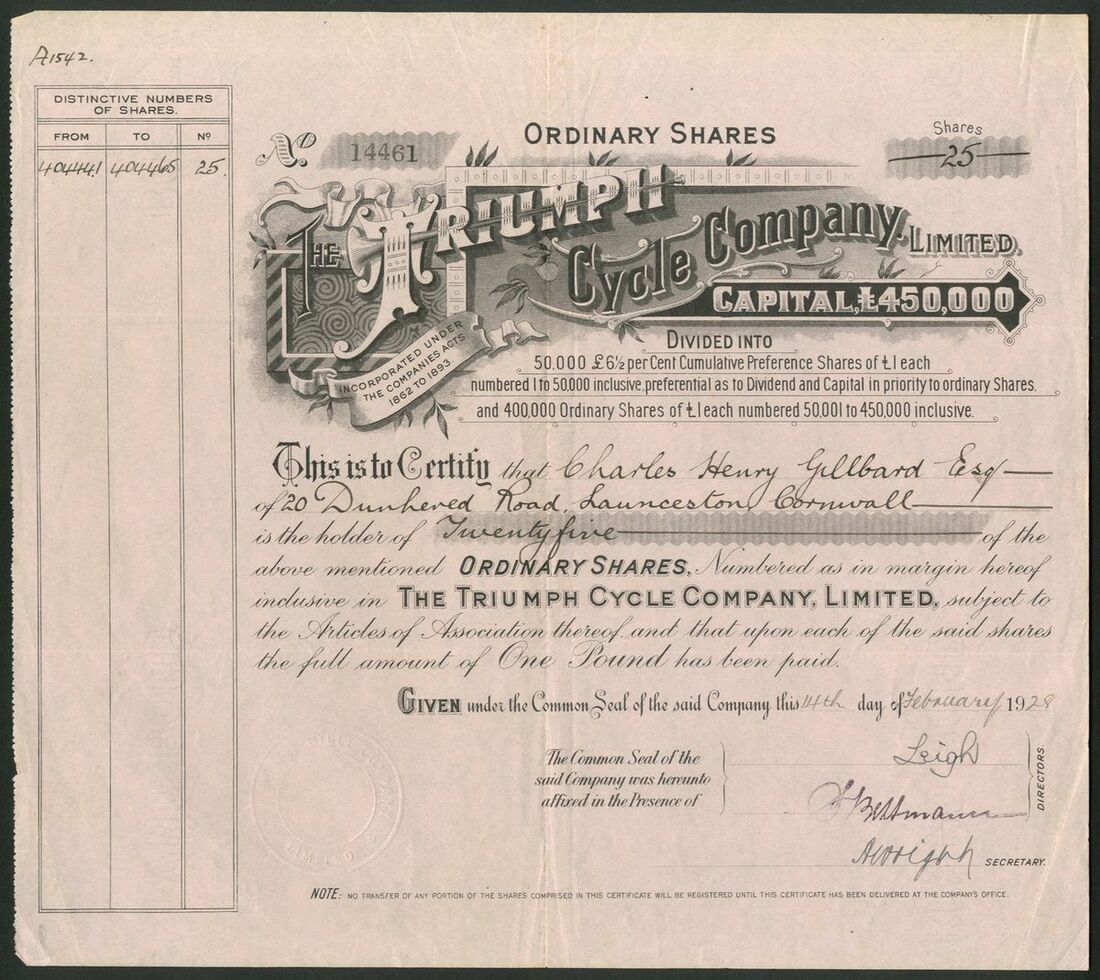 A1542.
DISTINCTIVE NUMBERS
OF SHARES.
FROM TO Nº
404441 404465 25.
Nº 14461
ORDINARY SHARES
Shares
25
THE TRIUMPH
Cycle Company. LIMITED.
CAPITAL, £450,000
INCORPORATED UNDER
THE COMPANIES ACTS
1862 TO 1893.
DIVIDED INTO
50.000 £6½ per Cent Cumulative Preference Shares of £1 each
numbered 1 to 50.000 inclusive, preferential as to Dividend and Capital in priority to ordinary Shares.
and 400,000 Ordinary Shares of £1 each numbered 50,001 to 450,000 inclusive.
This is to Certify that Charles Henry Gillbard Esq
of 20 Dunheved Road, Launceston, Cornwall
is the holder of Twentyfive of the
above mentioned ORDINARY SHARES, Numbered as in margin hereof
inclusive in THE TRIUMPH CYCLE COMPANY, LIMITED, subject to
the Articles of Association thereof, and that upon each of the said shares
the full amount of One Pound has been paid.
GIVEN under the Common Seal of the said Company this 14th day of February 1928
The Common Seal of the
said Company was hereunto
affixed in the Presence of
Leigh
Bettmann
DIRECTORS.
AWright SECRETARY.
NOTE: NO TRANSFER OF ANY PORTION OF THE SHARES COMPRISED IN THIS CERTIFICATE WILL BE REGISTERED UNTIL THIS CERTIFICATE HAS BEEN DELIVERED AT THE COMPANY'S OFFICE.